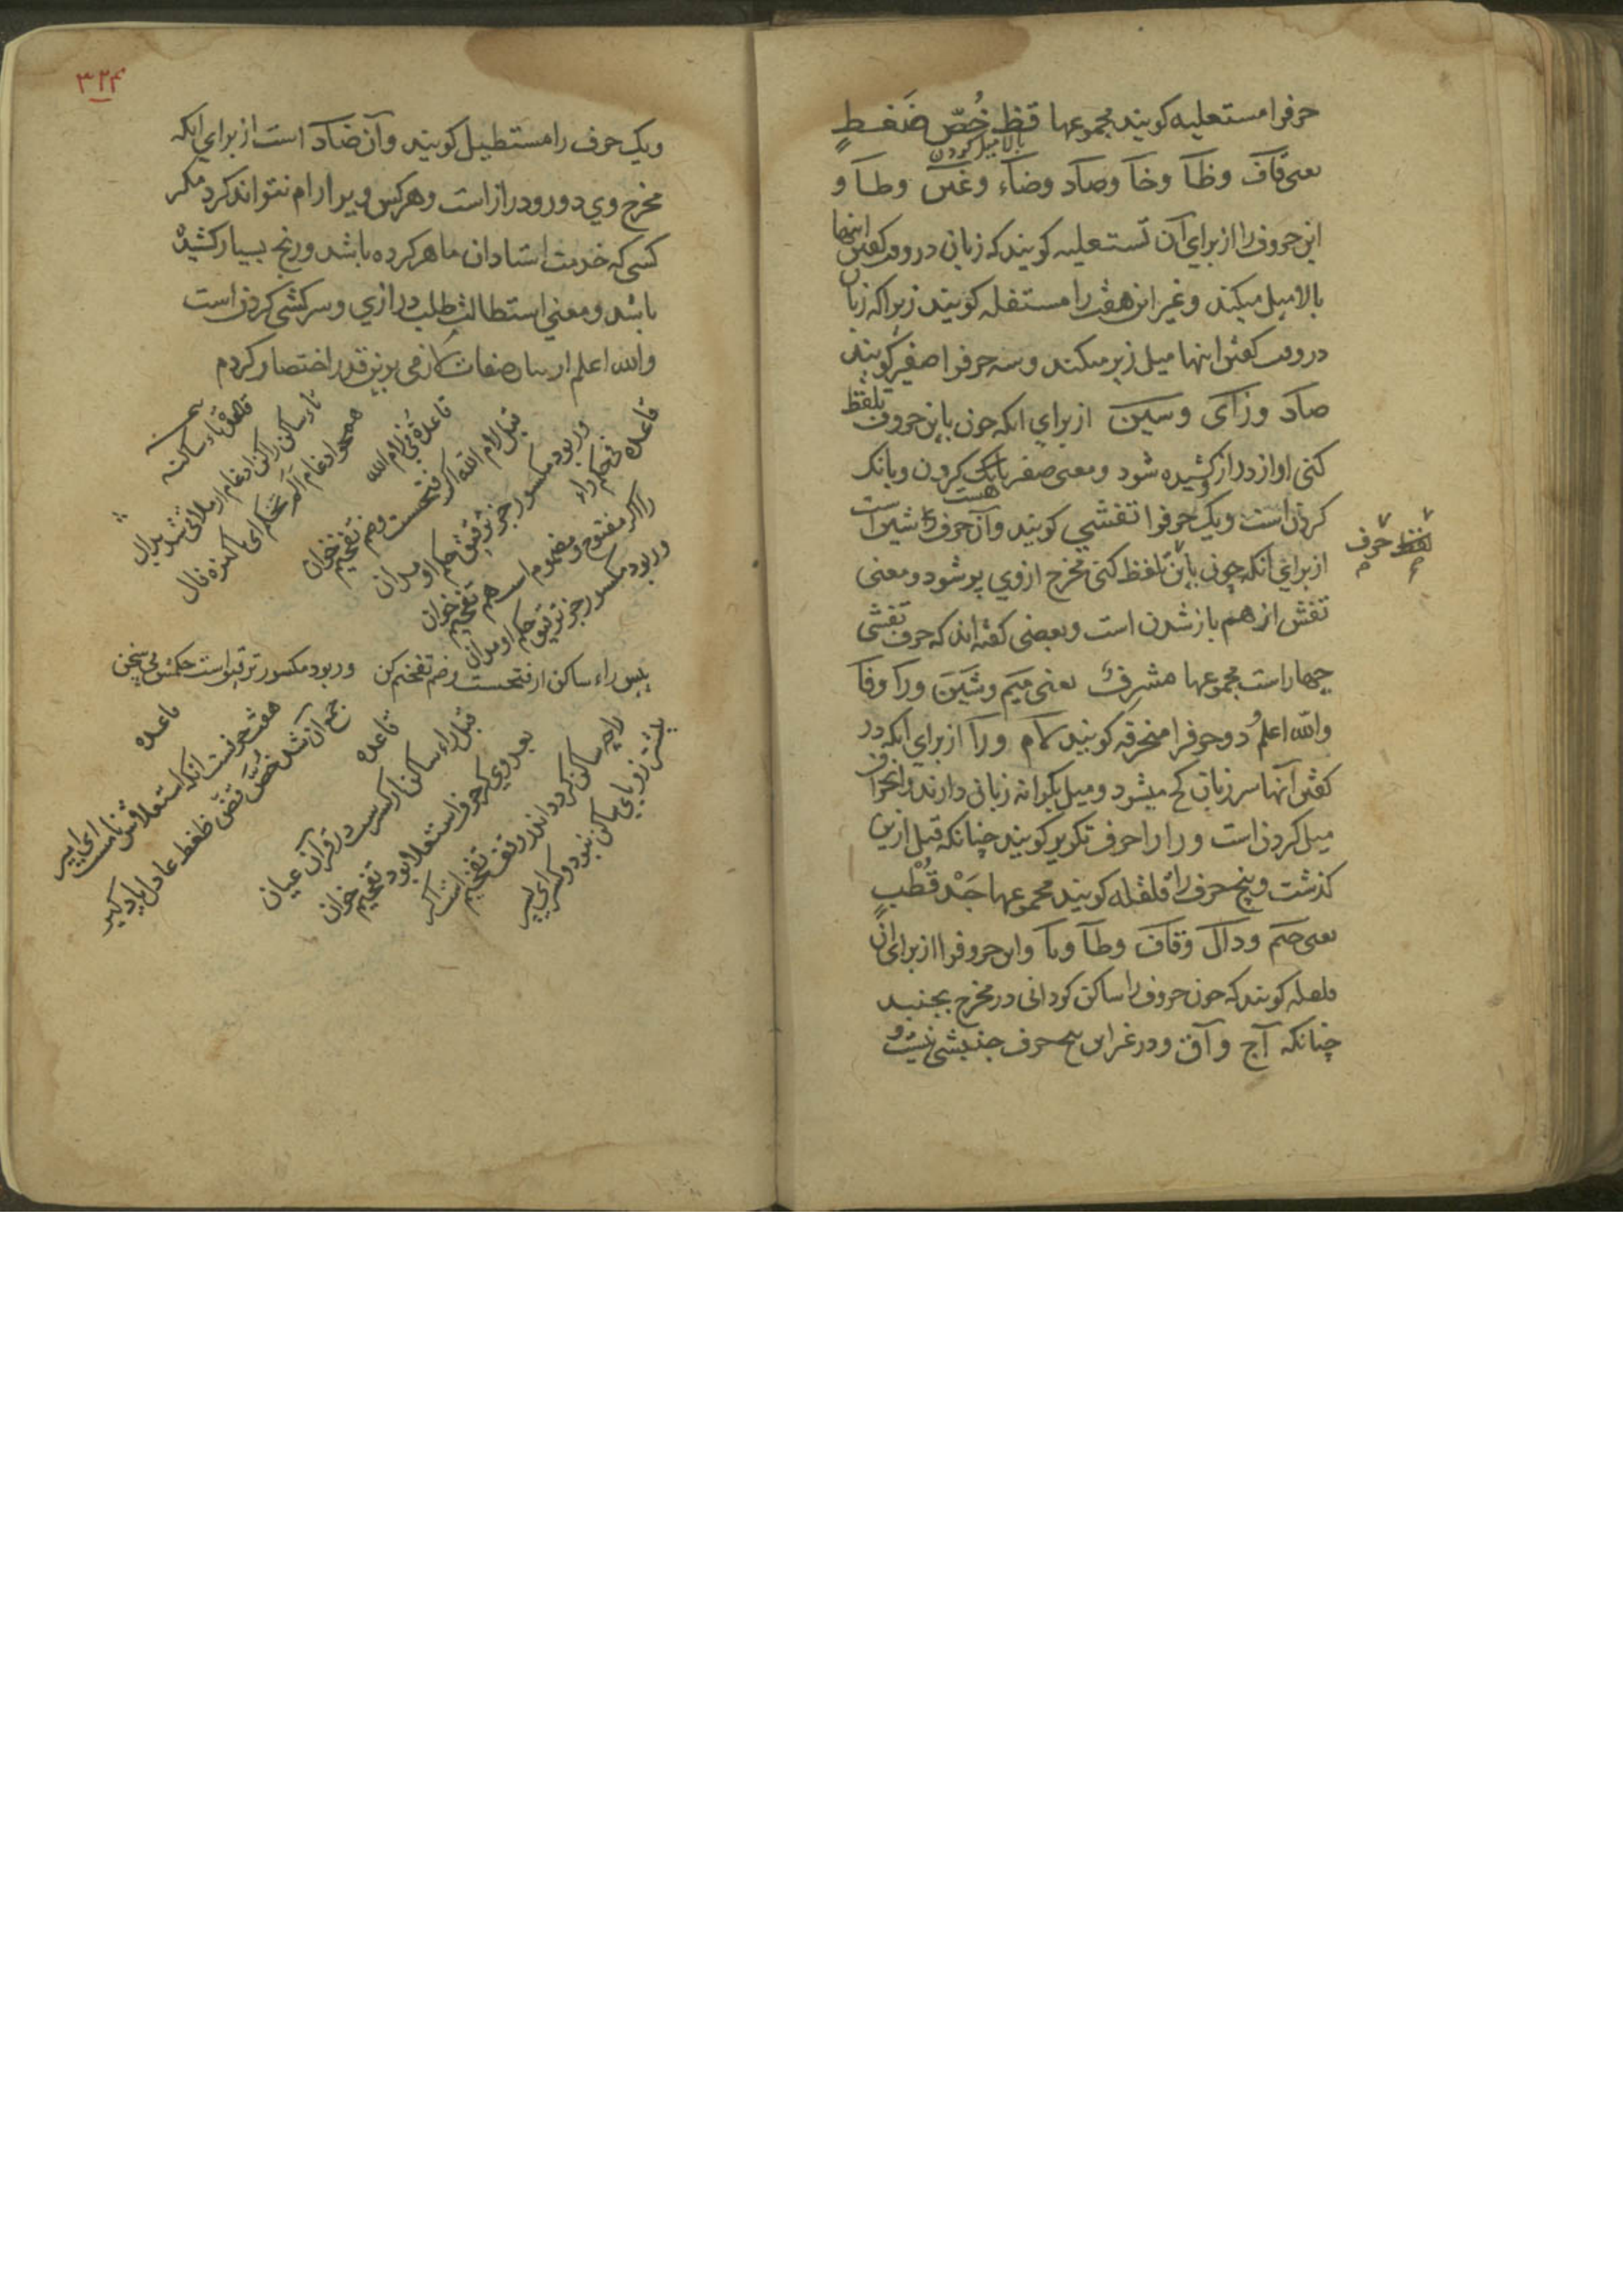 حرفرا مستعلیه کویند مجموعها قظ خُصّ ضَغطٍ
بالا میل کردن
یعنی قاف وظآ وخآ وصاد وضاء وغین وطآ و
این حروف را از برای آن مستعلیه کویند که زبان در وقت کفتن اینها
بالا میل میکند وغیر این هفت را مستفله کویند زیرا که زبان
در وقت کفتن اینها میل زیر میکند وسه حرفرا صغیر کویند
صاد وزای وسین از برای انکه چون باین حروف تلفظ
کنی اواز دراز کشیده شود ومعنی صفر بانک کردن وبانک
کردن است ویک حرفرا تفشی کویند وآن حرف شین است
هست
لفظ حرف
از برای آنکه چون باین تلفظ کنی مخرج ازوی پر شود ومعنی
تفش از هم باز شدن است وبعضی کفته اند که حرف تفشی
چهار است مجموعها مشرف یعنی میم وشین ورا وفا
والله اعلم دو حرفرا منحرفه کویند لام ورا از برای انکه در
کفتن آنها سر زبان کج میشود ومیل بکرانه زبان دارند وانحراف
میل کردن است ورا را حرف تکریر کویند چنانکه قبل ازین
کذشت وپنج حرف را قلقله کویند مجموعها جَدْ قُطْبٍ
یعنی جیم ودال وقاف وطآ وبا واین حروفرا از برای آن
قلقله کویند که چون حروف را ساکن کردانی در مخرج بجنبد
چنانکه آج وآق ودر غیر این پنج حرف جنبشی نیست و
۳۲۴
ویک حرف را مستطیل کویند وآن ضاد است از برای انکه
مخرج وی دور ودراز است وهر کس ویرا رام نتواند کرد مکر
کسی که خدمت استادان ماهر کرده باشد ورنج بسیار کشیده
باشد ومعنی استطالت طلب درازی وسرکشی کردن است
والله اعلم از بیان صفات لازمی برین قدر اختصار کردم
قاعده فی حکم راء
را اکر مفتوح ومضموم است هم تفخیم خوان
ور بود مکسور جز ترقیق حکم او مدان
قاعده فی لام الله
قبل لام الله اکر فتحست وضم تفخیم خوان
ور بود مکسور جز ترقیق حکم او مدان
قاعده تاء ساکنه
تاء ساکن را کن ادغام
همچو ادغام الم نخلقکم ای پاکیزه فال
پس راء ساکن ار فتحست وضم تفخیم کن
ور بود مکسور ترقیق است حکمش بی سخن
قاعده
قبل راء ساکن ار کسرست در قرآن عیان
بعد وی کر حرف استعلا بود تفخیم خوان
را چو ساکن کردد اندر وقف تفخیم است اکر
پیشتر زو یای ساکن نبود وکسر ای پسر
قاعده
هفت حرفست انکه استعلاش نامست ای پسر
جمع آن شد خص قض ظغط عادل یاد کیر